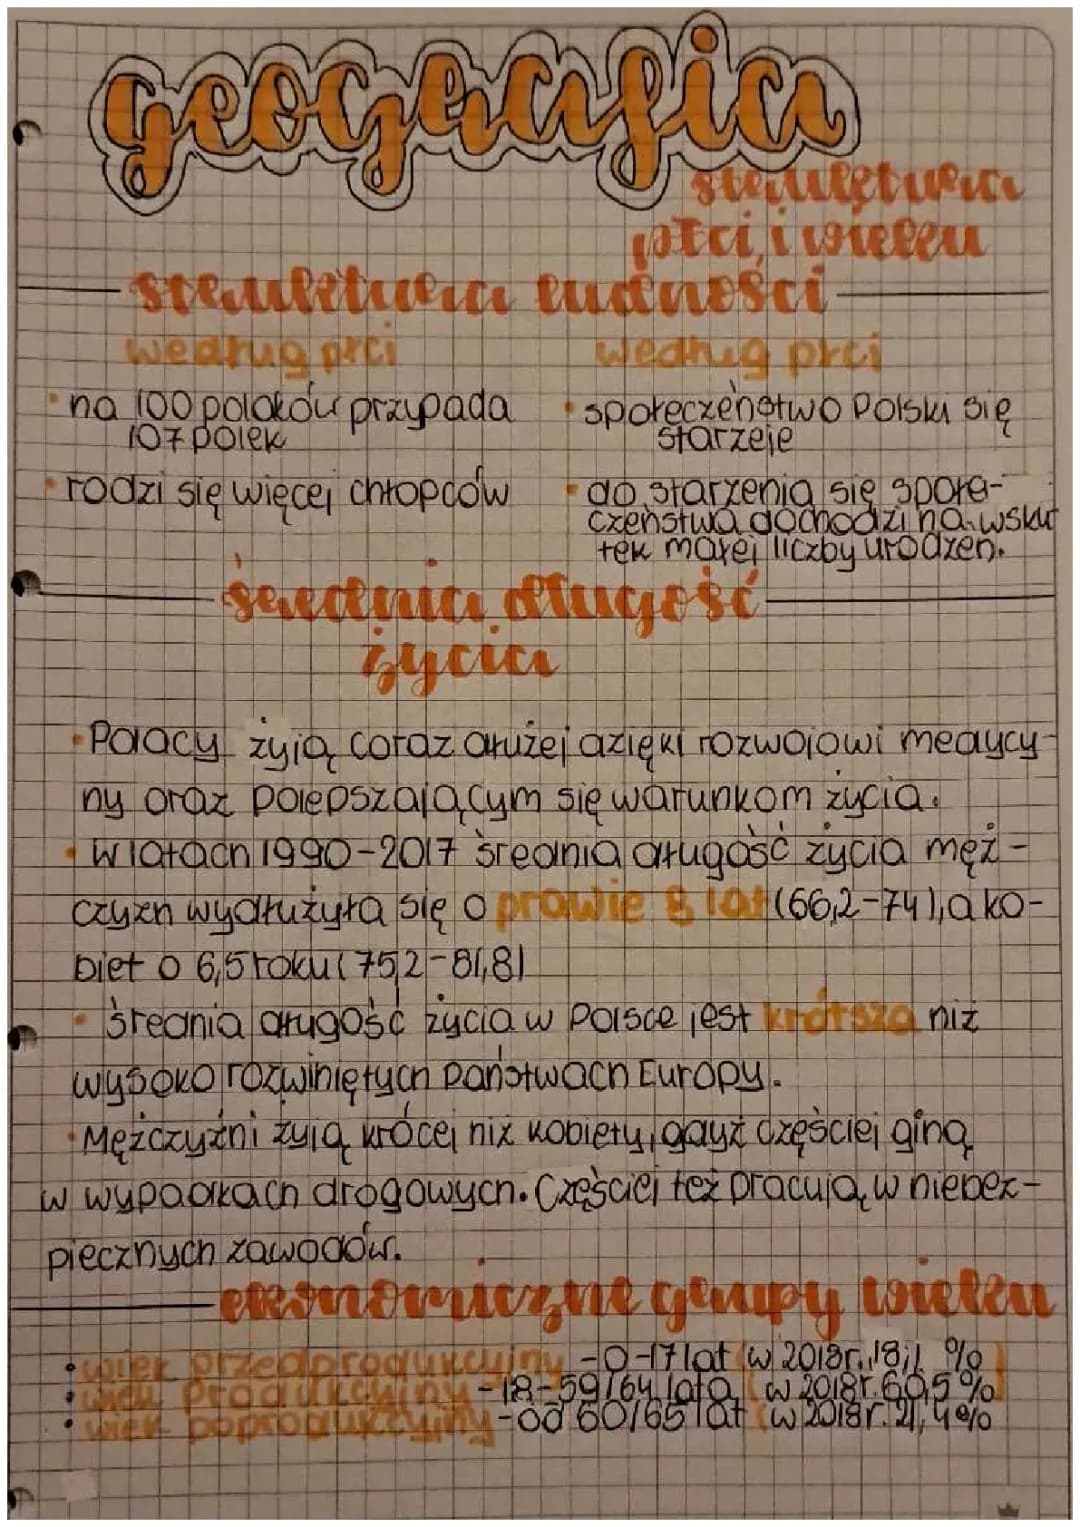 geografia
struktura
płci i wieku
struktura ludności
według płci
według płci
• na 100 polaków przypada
107 polek
• rodzi się więcej chłopców
• społeczeństwo Polski się
starzeje
• do starzenia się społe-
czeństwa dochodzi na wsku
tek małej liczby urodzeń.
średnia długość
życia
• Polacy żyją coraz dłużej dzięki rozwojowi medycy-
ny oraz polepszającym się warunkom życia.
• W latach 1990-2017 średnia długość życia męż-
czyzn wydłużyła się o prawie 8 lat (66,2-74), a ko-
biet o 6,5 roku (75,2-81,8)
• Średnia długość życia w Polsce jest krótsza niż
wysoko rozwiniętych państwach Europy.
• Mężczyźni żyją krócej niż kobiety, gdyż częściej giną
w wypadkach drogowych. Częściej też pracują w niebez-
piecznych zawodów.
ekonomiczne grupy wieku
• wiek przedprodukcyjny - 0-17 lat (w 2018r. 18,1 %)
• wiek produkcyjny - 18-59/64 lata (w 2018r. 60,5 %)
• wiek poprodukcyjny - od 60/65 lat (w 2018r. 21,4 %